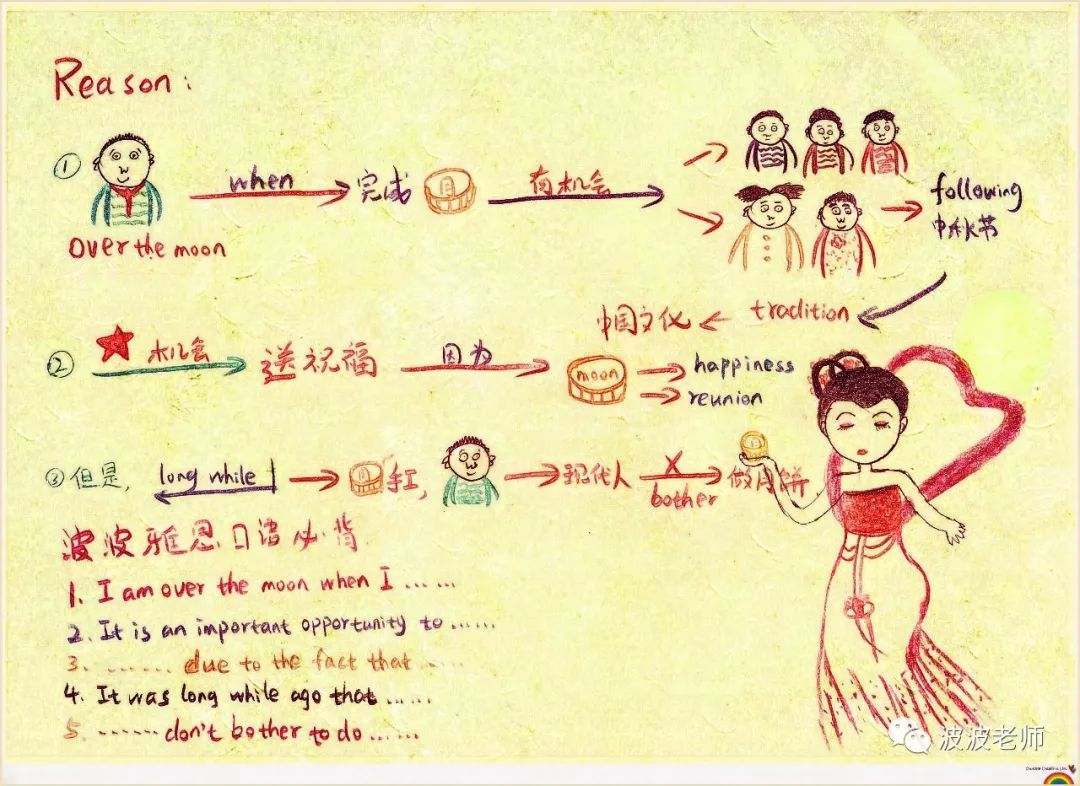 Reason:
① when 完成 有机会 following
中秋节
over the moon
中国文化 ← tradition
② 机会 送祝福 因为 moon happiness
reunion
③ 但是, long while 手工, 现代人 × bother 做月饼
波波雅思口语必背
1. I am over the moon when I ... ...
2. It is an important opportunity to ......
3. ........ due to the fact that ......
4. It was long while ago that ......
5. ....... don't bother to do ......
波波老师